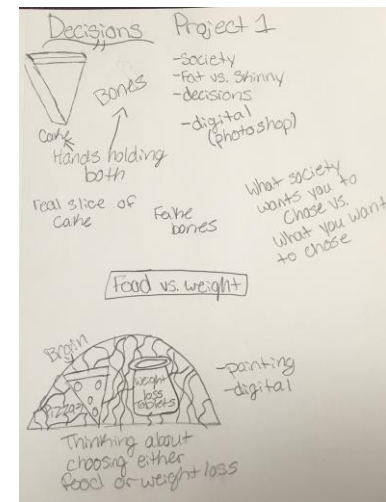 Decisions
Project 1
-Society
-Fat vs. Skinny
-decisions
-digital
(photoshop)
Bones
Cake
Hands holding
both
real slice of
cake
Fake
bones
What society
wants you to
Chose vs.
What you want
to chose
Food vs. weight
Brain
Pizza
weight
loss
tablets
-painting
-digital
Thinking about
choosing either
food or weight loss